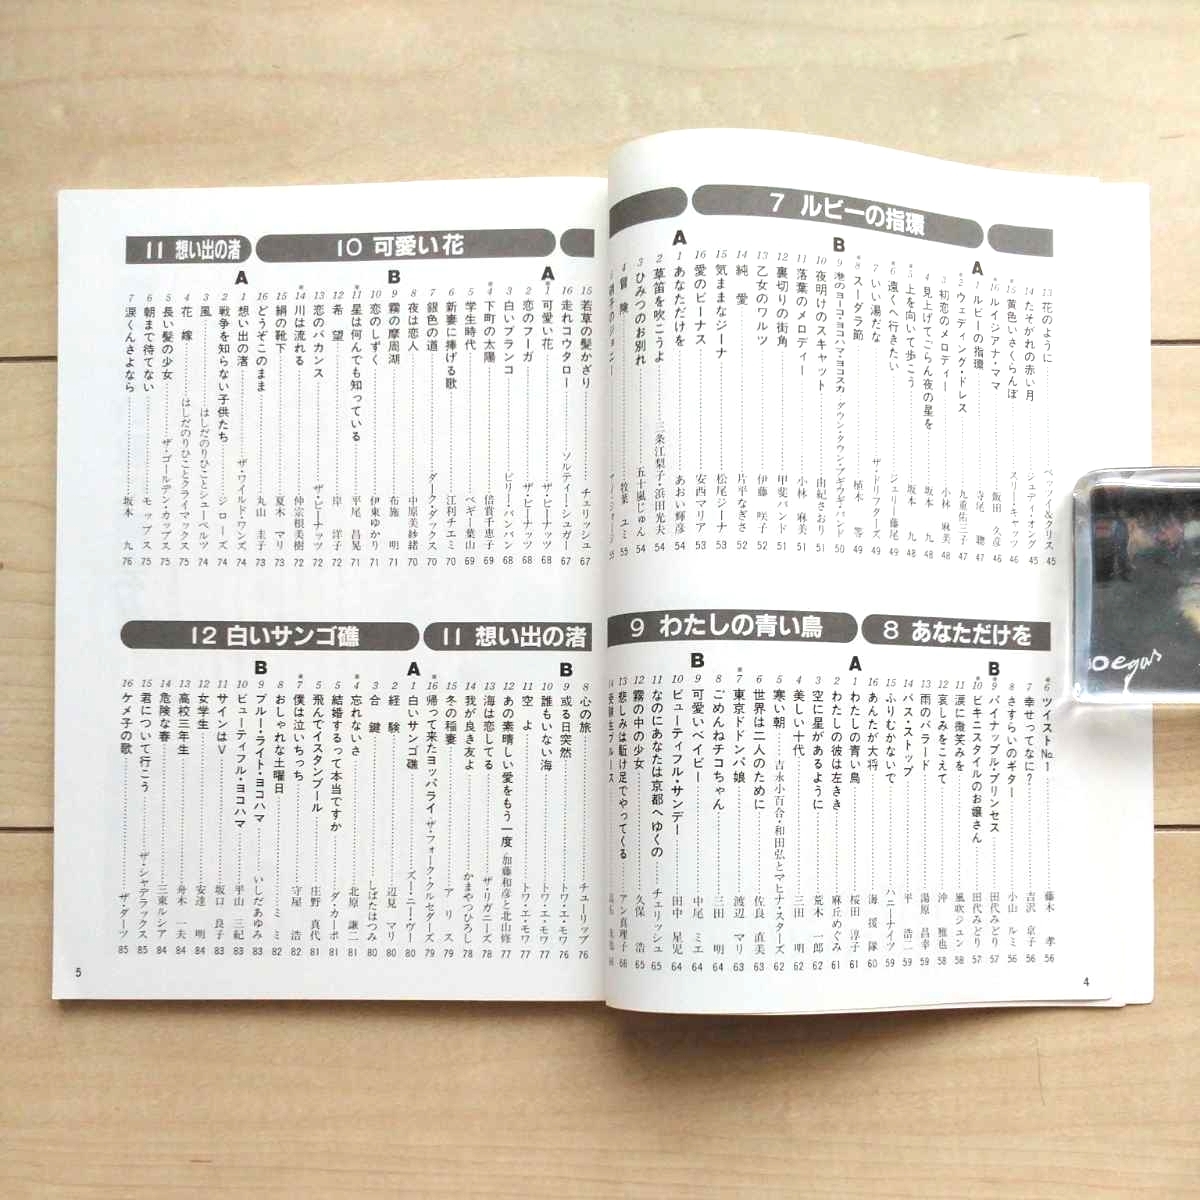 7 ルビーの指環
13 花のように ペッブ&クリス 45
14 たそがれの赤い月 ジュディ・オング 45
*15 黄色いさくらんぼ スリー・キャッツ 46
*16 ルイジアナ・ママ 飯田久彦 46
A
1 ルビーの指環 寺尾 聰 47
*2 ウェディング・ドレス 九重佑三子 47
3 初恋のメロディー 小林麻美 48
4 見上げてごらん夜の星を 坂本 九 48
*5 上を向いて歩こう 坂本 九 49
*6 遠くへ行きたい ジェリー藤尾 49
7 いい湯だな ザ・ドリフターズ 49
*8 スーダラ節 植木 等 49
B
9 港のヨーコ・ヨコハマ・ヨコスカ ダウン・タウン・ブギウギ・バンド 50
10 夜明けのスキャット 由紀さおり 51
11 落葉のメロディー 小林麻美 51
12 裏切りの街角 甲斐バンド 51
13 乙女のワルツ 伊藤咲子 52
14 純愛 片平なぎさ 52
15 気ままなジーナ 松尾ジーナ 53
16 愛のビーナス 安西マリア 53
A
1 あなただけを あおい輝彦 54
2 草笛を吹こうよ 三条江梨子・浜田光夫 54
3 ひみつのお別れ 五十嵐じゅん 54
4 冒険 牧葉ユミ 55
8 あなただけを
*6 ツイストNo.1 藤木 孝 56
7 幸せってなに? 吉沢京子 56
8 さすらいのギター 小山ルミ 56
B
*9 パイナップル・プリンセス 田代みどり 57
*10 ビキニスタイルのお嬢さん 田代みどり 57
11 涙に微笑みを 風吹ジュン 58
12 哀しみをこえて 沖 雅也 58
13 雨のバラード 湯原昌幸 59
14 バス・ストップ 平 浩二 59
15 ふりむかないで ハニーナイツ 59
16 あんたが大将 海援隊 60
9 わたしの青い鳥
A
1 わたしの青い鳥 桜田淳子 61
2 わたしの彼は左きき 麻丘めぐみ 61
3 空に星があるように 荒木一郎 62
4 美しい十代 三田 明 62
5 寒い朝 吉永小百合・和田弘とマヒナ・スターズ 62
6 世界は二人のために 佐良直美 63
*7 東京ドドンパ娘 渡辺マリ 63
8 ごめんねチコちゃん 三田 明 64
B
9 可愛いベイビー 中尾ミエ 64
10 ビューティフル・サンデー 田中星児 64
11 なのにあなたは京都へゆくの チェリッシュ 65
12 霧の中の少女 久保 浩 65
13 悲しみは駈け足でやってくる アン真理子 66
4
10 可愛い花
15 若草の髪かざり チェリッシュ 67
16 走れコウタロー ソルティー・シュガー 67
A
*1 可愛い花 ザ・ピーナッツ 68
2 恋のフーガ ザ・ピーナッツ 68
3 白いブランコ ビリー・バンバン 68
*4 下町の太陽 倍賞千恵子 69
5 学生時代 ペギー葉山 69
6 新妻に捧げる歌 江利チエミ 70
7 銀色の道 ダーク・ダックス 70
8 夜は恋人 中原美紗緒 70
B
9 霧の摩周湖 布施 明 71
10 恋のしずく 伊東ゆかり 71
*11 星は何んでも知っている 平尾昌晃 71
12 希望 岸 洋子 72
13 恋のバカンス ザ・ピーナッツ 72
*14 川は流れる 仲宗根美樹 72
15 絹の靴下 夏木マリ 73
16 どうぞこのまま 丸山圭子 73
11 想い出の渚
A
1 想い出の渚 ザ・ワイルド・ワンズ 74
2 戦争を知らない子供たち ジローズ 74
3 風 はしだのりひことシューベルツ 74
4 花嫁 はしだのりひことクライマックス 75
5 長い髪の少女 ザ・ゴールデン・カップス 75
6 朝まで待てない モップス 75
7 涙くんさよなら 坂本 九 76
11 想い出の渚
8 心の旅 チューリップ 76
B
9 或る日突然 トワ・エ・モワ 76
10 誰もいない海 トワ・エ・モワ 77
11 空よ トワ・エ・モワ 77
12 あの素晴しい愛をもう一度 加藤和彦と北山修 77
13 海は恋してる ザ・リガニーズ 78
14 我が良き友よ かまやつひろし 78
15 冬の稲妻 アリス 79
*16 帰って来たヨッパライ ザ・フォーク・クルセダーズ 79
12 白いサンゴ礁
A
1 白いサンゴ礁 ズー・ニー・ヴー 80
2 経験 辺見マリ 80
3 合鍵 しばたはつみ 80
*4 忘れないさ 北原謙二 81
5 結婚するって本当ですか ダ・カーポ 81
6 飛んでイスタンブール 庄野真代 81
*7 僕は泣いちっち 守屋 浩 82
8 おしゃれな土曜日 ミミ 82
B
9 ブルー・ライト・ヨコハマ いしだあゆみ 83
10 ビューティフル・ヨコハマ 平山三紀 83
11 サインはV 坂口良子 83
12 女学生 安達 明 84
13 高校三年生 舟木一夫 84
14 危険な春 三東ルシア 84
15 君について行こう ザ・シャデラックス 85
16 ケメ子の歌 ザ・ダーツ 85
5